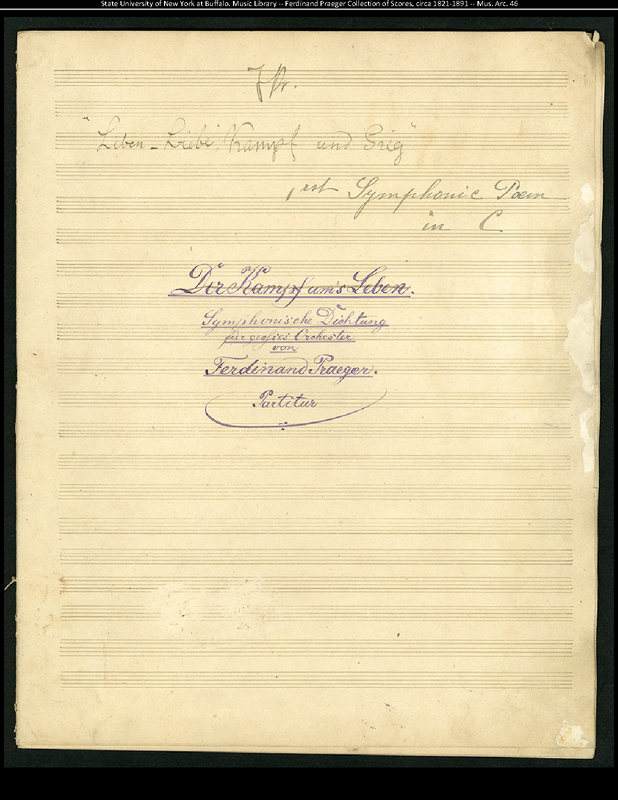 State University of New York at Buffalo. Music Library -- Ferdinand Praeger Collection of Scores, circa 1821-1891 -- Mus. Arc. 46
F Pr.
"Leben - Liebe, Kampf und Sieg"
1est Symphonic Poem
in C
Der Kampf um's Leben.
Symphonische Dichtung
für großes Orchester
von
Ferdinand Praeger.
Partitur